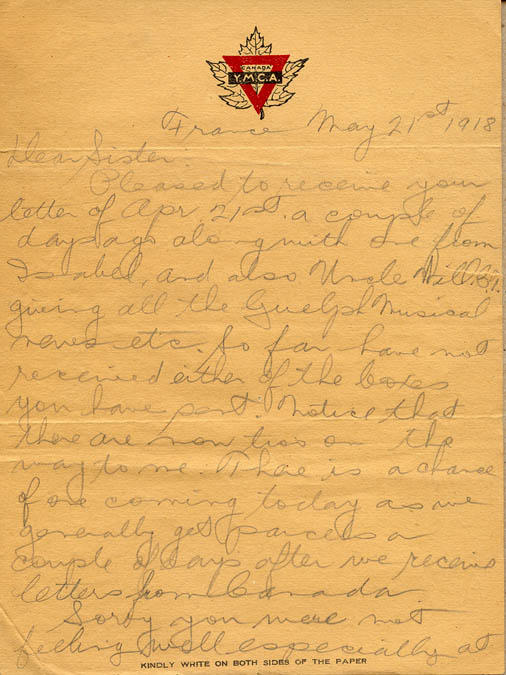 CANADA
Y.M.C.A.
France May 21st 1918
Dear Sister.
Pleased to receive your
letter of Apr 21st. a couple of
days ago along with one from
Isabel, and also Uncle Will
giving all the Guelph Musical
news etc. So far have not
received either of the boxes
you have sent. Notice that
there are now two on the
way to me. There is a chance
of one coming today as we
generally get parcels a
couple of days after we receive
letters from Canada.
Sorry you were not
feeling well especially at
KINDLY WRITE ON BOTH SIDES OF THE PAPER